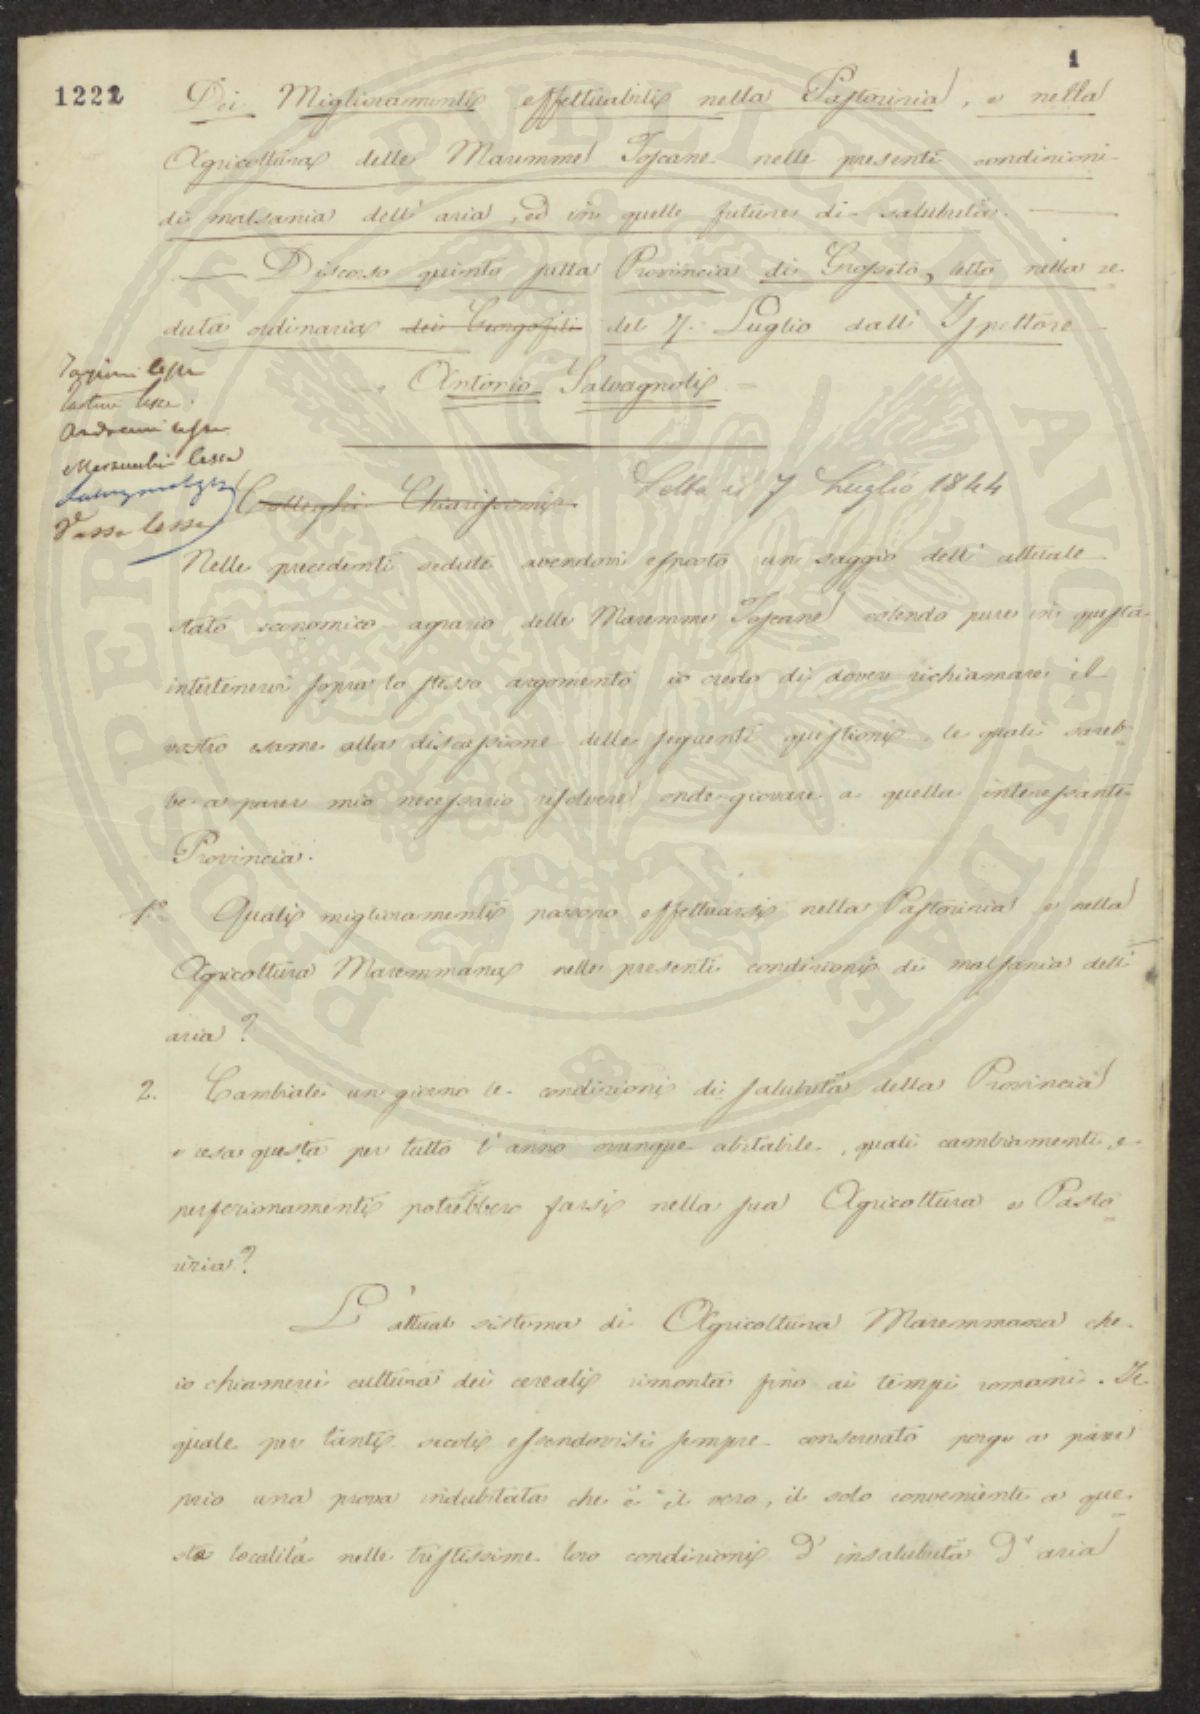 1
1222
Dei Miglioramenti effettuabili nella Pastorizia, e nella
Agricoltura delle Maremme Toscane nelle presenti condizioni
di malsania dell' aria, ed in quelle future di salubrità.
Discorso quinto sulla Provincia di Grosseto, letto nella se
duta ordinaria dei Georgofili del 7. Luglio dall' Ispettore
Antonio Salvagnoli
Lapini lesse
lesse
Andreucci lesse
lesse
lesse
Colleghi Chiarissimi
Letta il 7 Luglio 1844
Nelle precedenti sedute avendovi esposto un saggio dell' attuale
stato economico agrario delle Maremme Toscane volendo pure in questa
intertenervi sopra lo stesso argomento io credo di dovere richiamare il
vostro esame alla discussione delle seguenti questioni le quali sareb-
be a parer mio necessario risolvere onde giovare a quella interessante
Provincia.
1.° Quali miglioramenti possono effettuarsi nella Pastorizia e nella
Agricoltura Maremmana nelle presenti condizioni di malsania dell'
aria?
2. Cambiate un giorno le condizioni di salubrità della Provincia
e resa questa per tutto l' anno ovunque abitabile, quali cambiamenti, e
perfezionamenti potrebbero farsi nella sua Agricoltura e Pasto
rizia?
L' attual sistema di Agricoltura Maremmana che
io chiamerei cultura dei cereali rimonta fino ai tempi romani. Il
quale per tanti secoli essendovisi sempre conservato porge a parer
mio una prova indubitata che è il vero, il solo conveniente a que-
sta località nelle tristissime loro condizioni d' insalubrità d' aria
PROSPERITATI PVBLICAE AVGENDAE